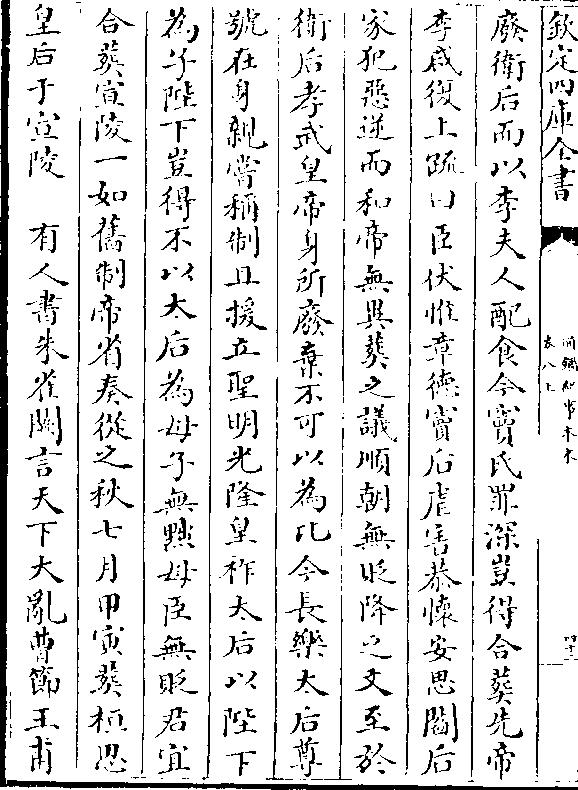 欽定四庫全書
通鑑紀事本末
卷八上
四十三
廢衛后而以李夫人配食今竇氏罪深豈得合葬先帝
李咸復上疏曰臣伏惟章德竇后虐害恭懷安思閻后
家犯惡逆而和帝無異葬之議順朝無貶降之文至於
衛后孝武皇帝身所廢棄不可以為比今長樂太后尊
號在身親嘗稱制且援立聖明光隆皇祚太后以陛下
為子陛下豈得不以太后為母子無黜母臣無貶君宜
合葬宣陵一如舊制帝省奏從之秋七月甲寅葬桓思
皇后于宣陵　有人書朱雀闕言天下大亂曹節王甫